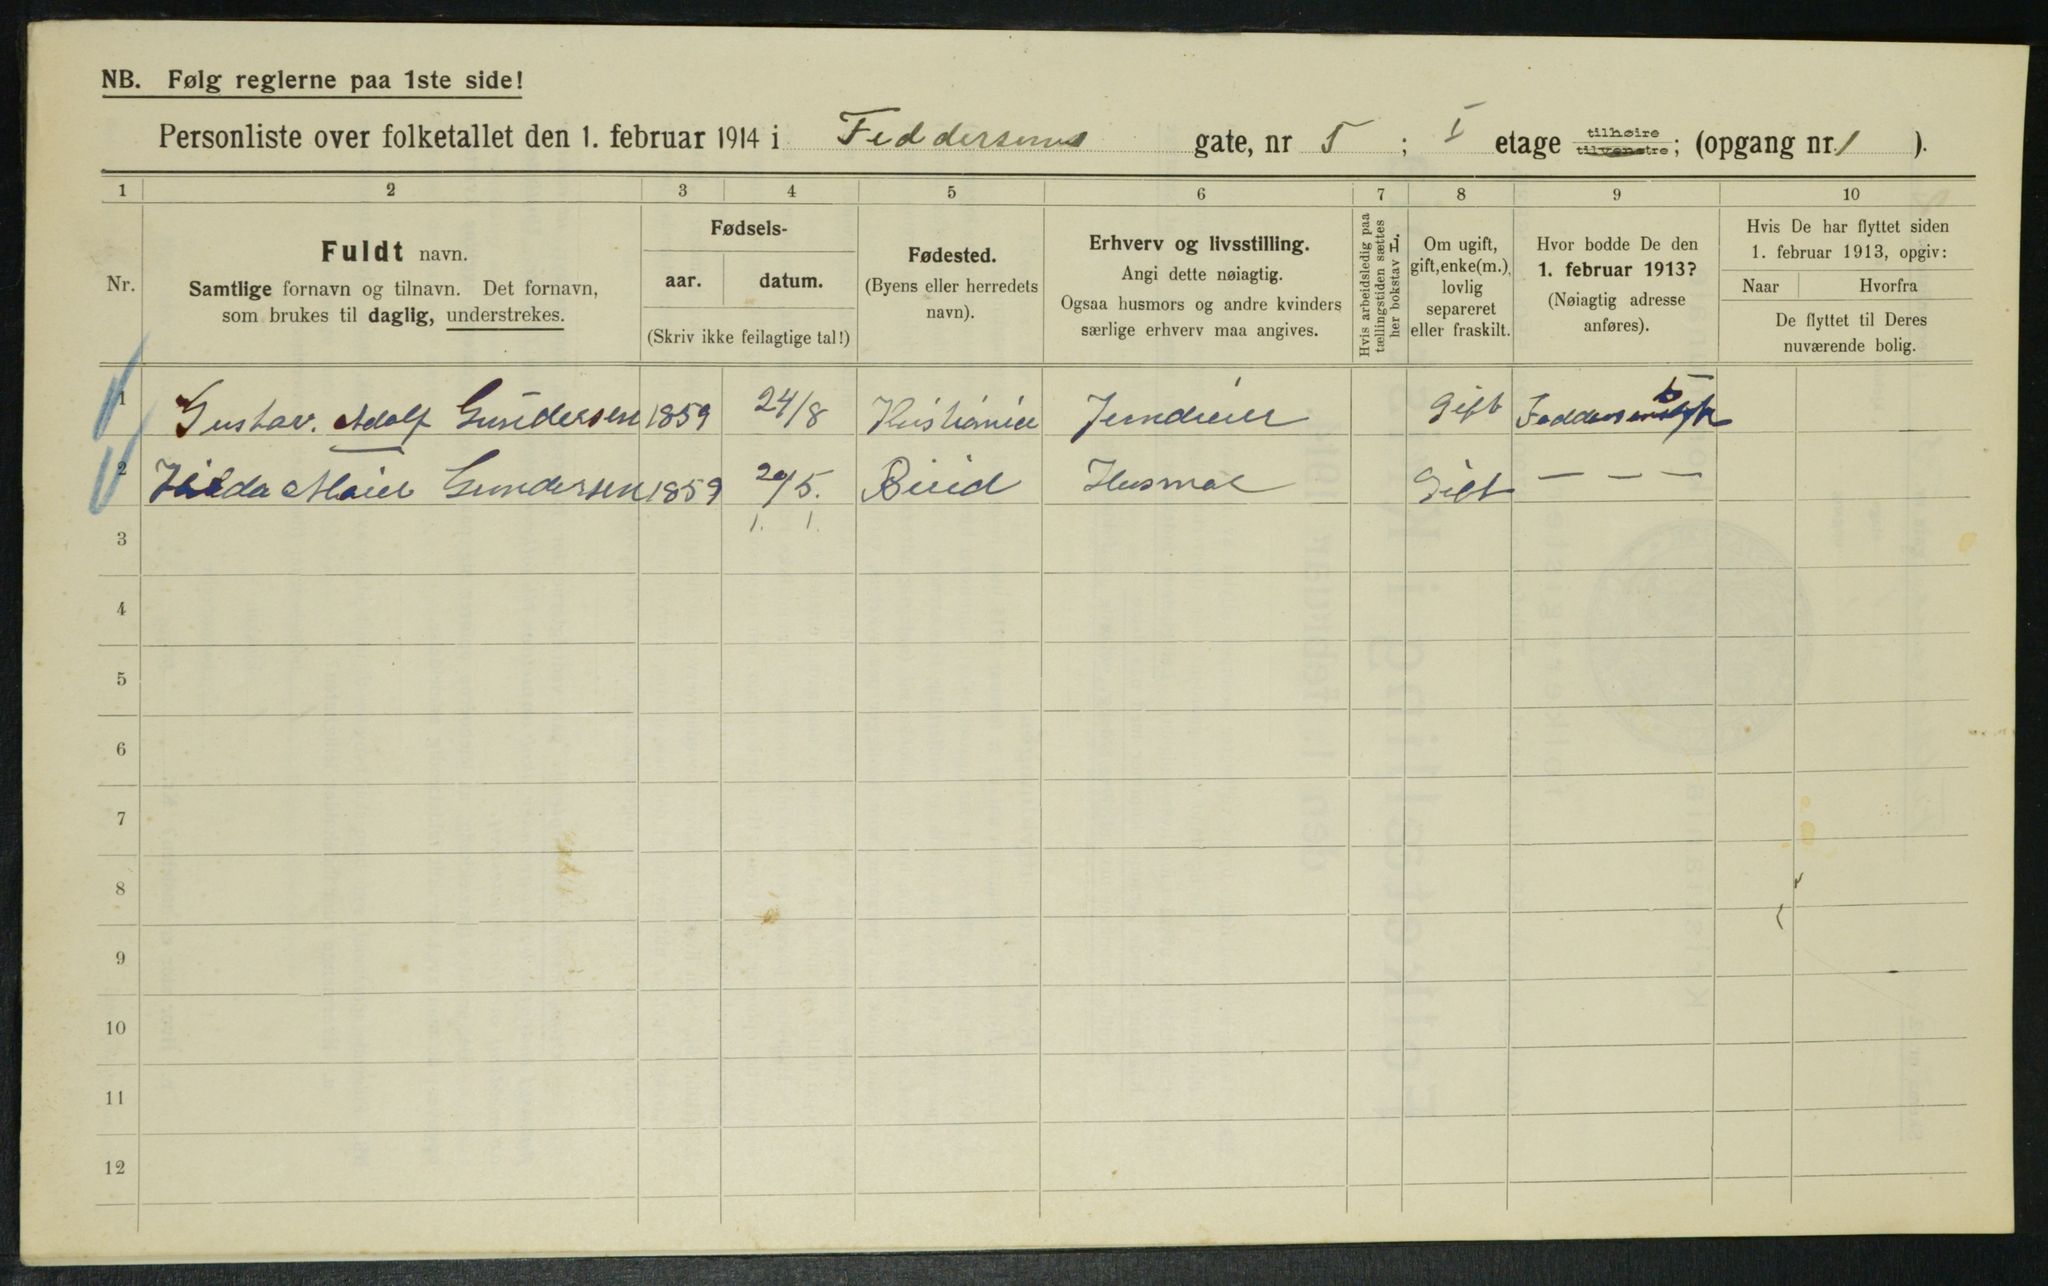 NB. Følg reglerne paa 1ste side!
Personliste over folketallet den 1. februar 1914 i Feddersens gate, nr 5 ; I etage tilhøire tilvenstre; (opgang nr. 1 ).
1 2 3 4 5 6 7 8 9 10
Nr.
Fuldt navn.
Samtlige fornavn og tilnavn. Det fornavn,
som brukes til daglig, understrekes.
Fødsels-
aar. datum.
(Skriv ikke feilagtige tal!)
Fødested.
(Byens eller herredets
navn).
Erhverv og livsstilling.
Angi dette nøiagtig.
Ogsaa husmors og andre kvinders
særlige erhverv maa angives.
Hvis arbeidsledig paa
tællingstiden sættes
her bokstav L.
Om ugift,
gift, enke(m.),
lovlig
separeret
eller fraskilt.
Hvor bodde De den
1. februar 1913?
(Nøiagtig adresse
anføres).
Hvis De har flyttet siden
1. februar 1913, opgiv:
Naar Hvorfra
De flyttet til Deres
nuværende bolig.
1 Gustav. Adolf Gundersen 1859 24/8 Kristiania Jerndreier Gift 5
2 Hilda Gundersen 1859 20/5. Birid Husmor Gift — — —
3
4
5
6
7
8
9
10
11
12